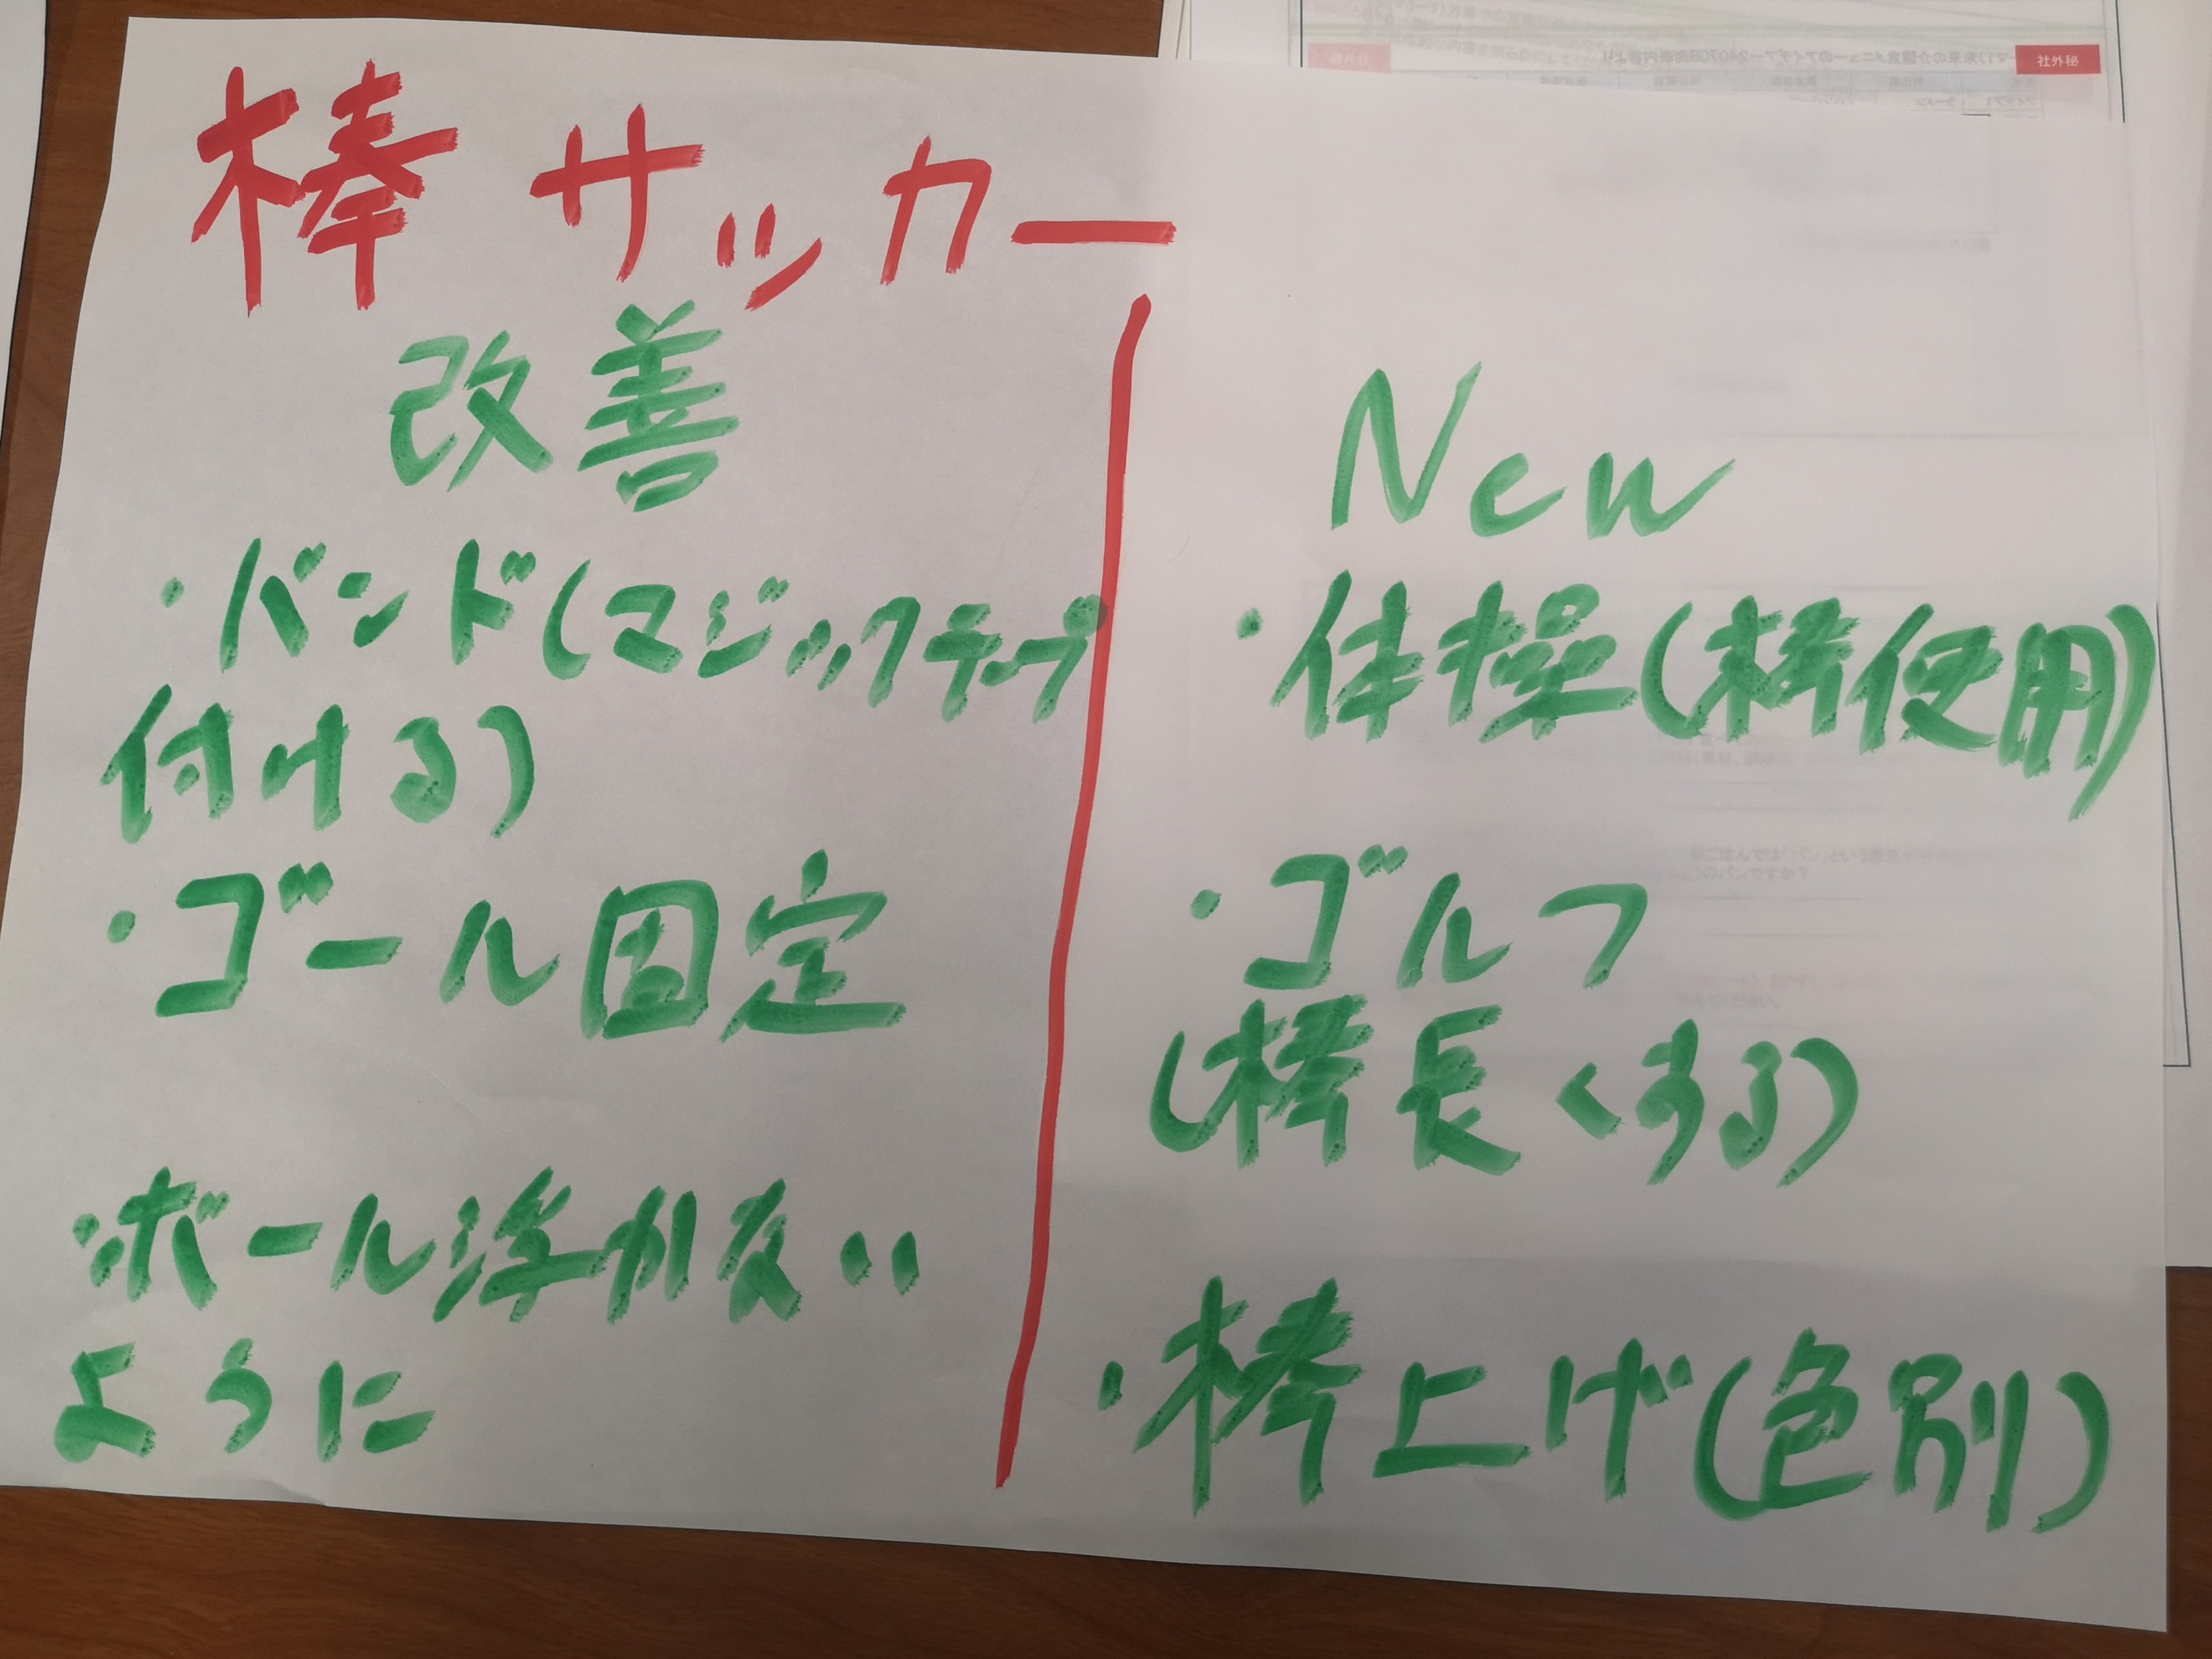 棒サッカー
改善
・バンド(マジックテープ
付ける)
・ゴール固定
・ボール浮かない
ように
New
・体操(棒使用)
・ゴルフ
(棒長くする)
・棒上げ(色別)
社外秘